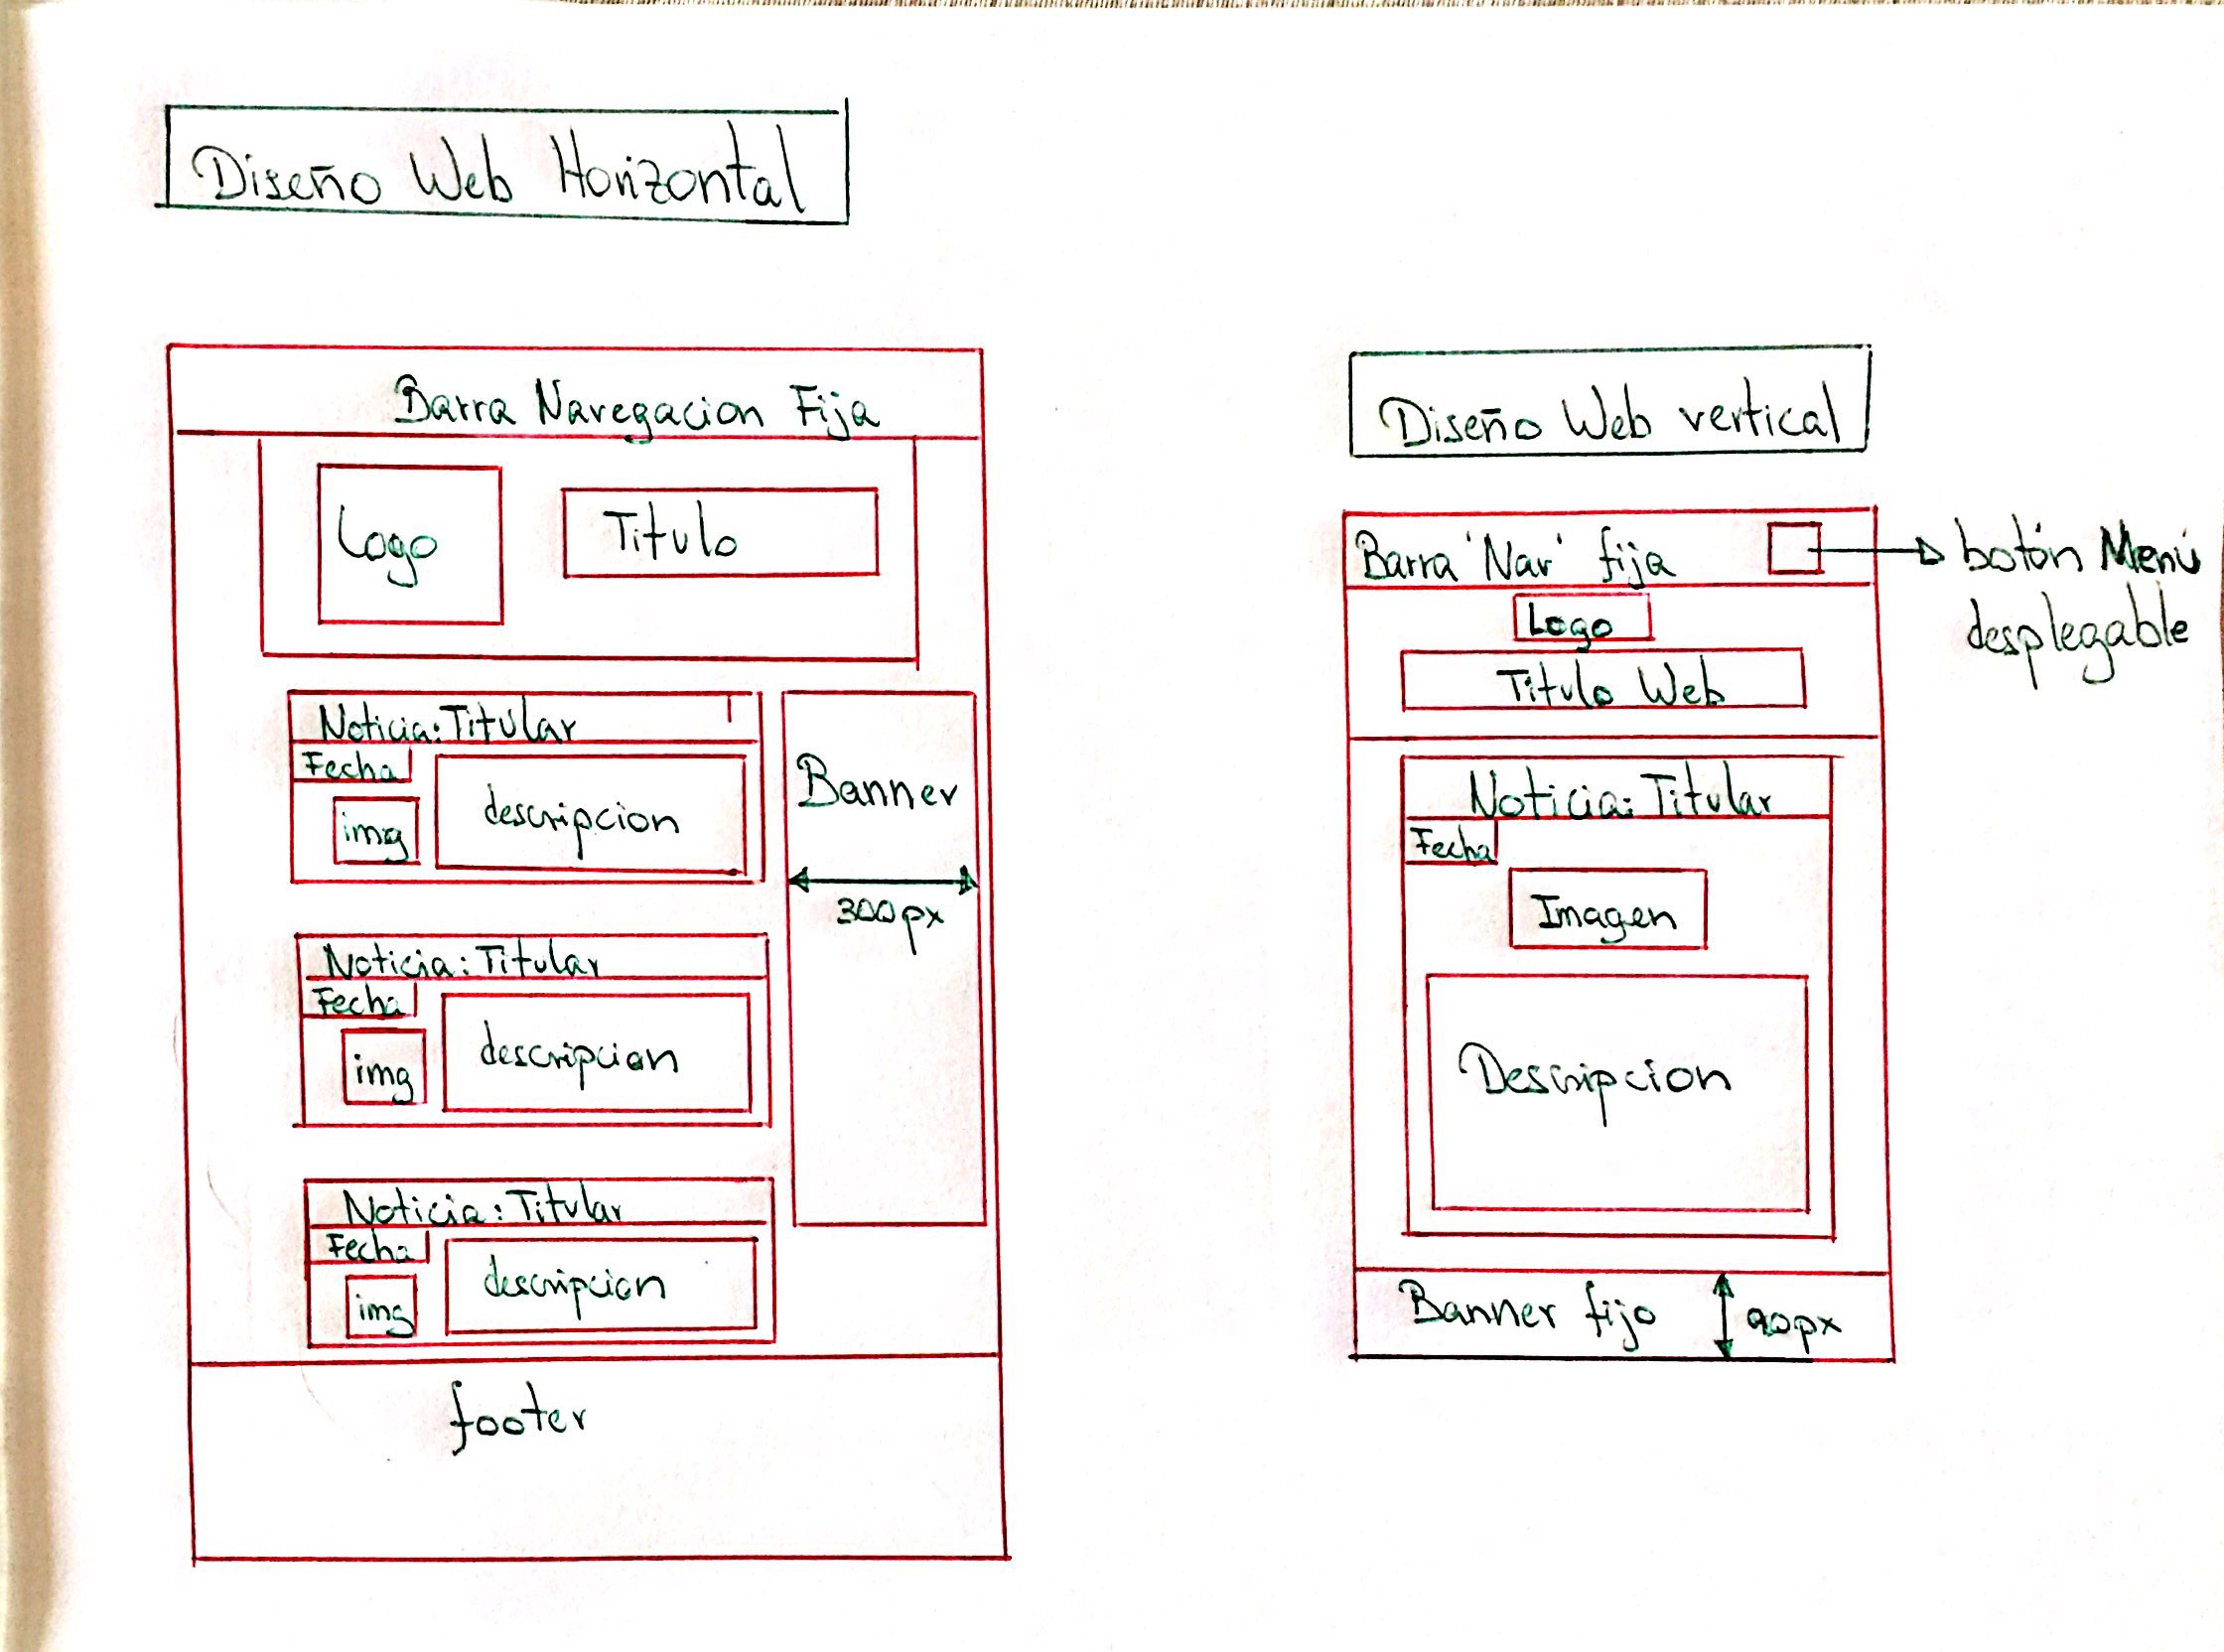 Diseño Web Horizontal
Barra Navegacion Fija
Logo
Titulo
Noticia: Titular
Fecha
img
descripcion
Banner
300px
Noticia: Titular
Fecha
img
descripcion
Noticia: Titular
Fecha
img
descripcion
footer
Diseño Web vertical
Barra 'Nav' fija
botón Menú
desplegable
Logo
Titulo Web
Noticia: Titular
Fecha
Imagen
Descripcion
Banner fijo
90px